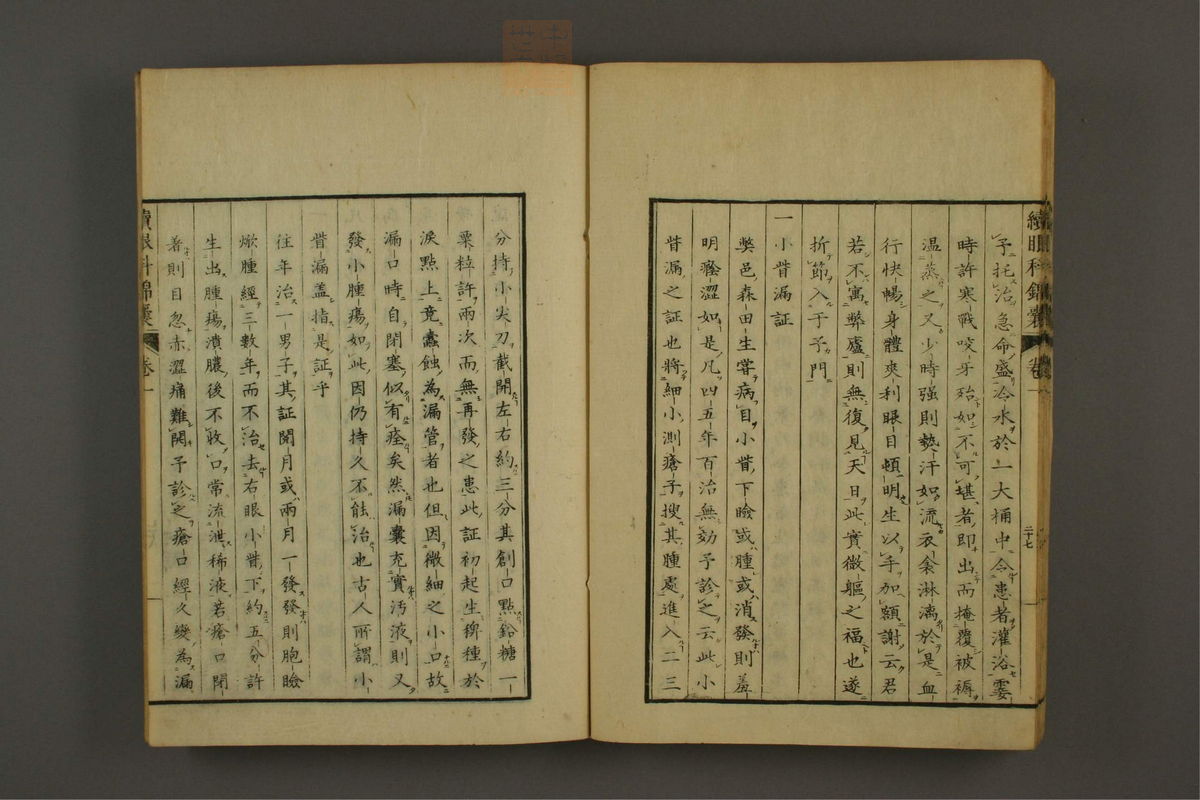 續眼科錦囊 卷一
二十七
予托治急命盛冷水於一大桶中令患者灌浴霎
時許寒戰咬牙殆如不可堪者即出而掩覆被褥
温蒸之又少時强則熱汗如流衣衾淋漓於是血
行快暢身體爽利眼目頓明生以手加額謝云君
若不寓弊廬則無復見天日此實微軀之福也遂
折節入于予門
一小眥漏証
弊邑森田生嘗病目小眥下瞼或腫或消發則羞
明癢澀如是凡四五年百治無効予診之云此小
眥漏之証也將細小測瘡子搜其腫處進入二三
分持小尖刀截開左右約三分其創口點鉛糖一
粟粒許兩次而無再發之患此証初起生稗種於
淚點上竟蠹蝕為漏管者也但因微細之小口故
漏口時自閉塞似有痊矣然漏囊充實汚液則又
發小腫瘍如此因仍持久不能治也古人所謂小
眥漏盖指是証乎
往年治一男子其証閒月或兩月一發發則胞瞼
焮腫經三數年而不治去右眼小眥下約五分許
生出腫瘍潰膿後不收口常流泄稀液若瘡口閉
著則目忽赤澀痛難開予診之瘡口經久變為漏
續眼科錦囊 卷一